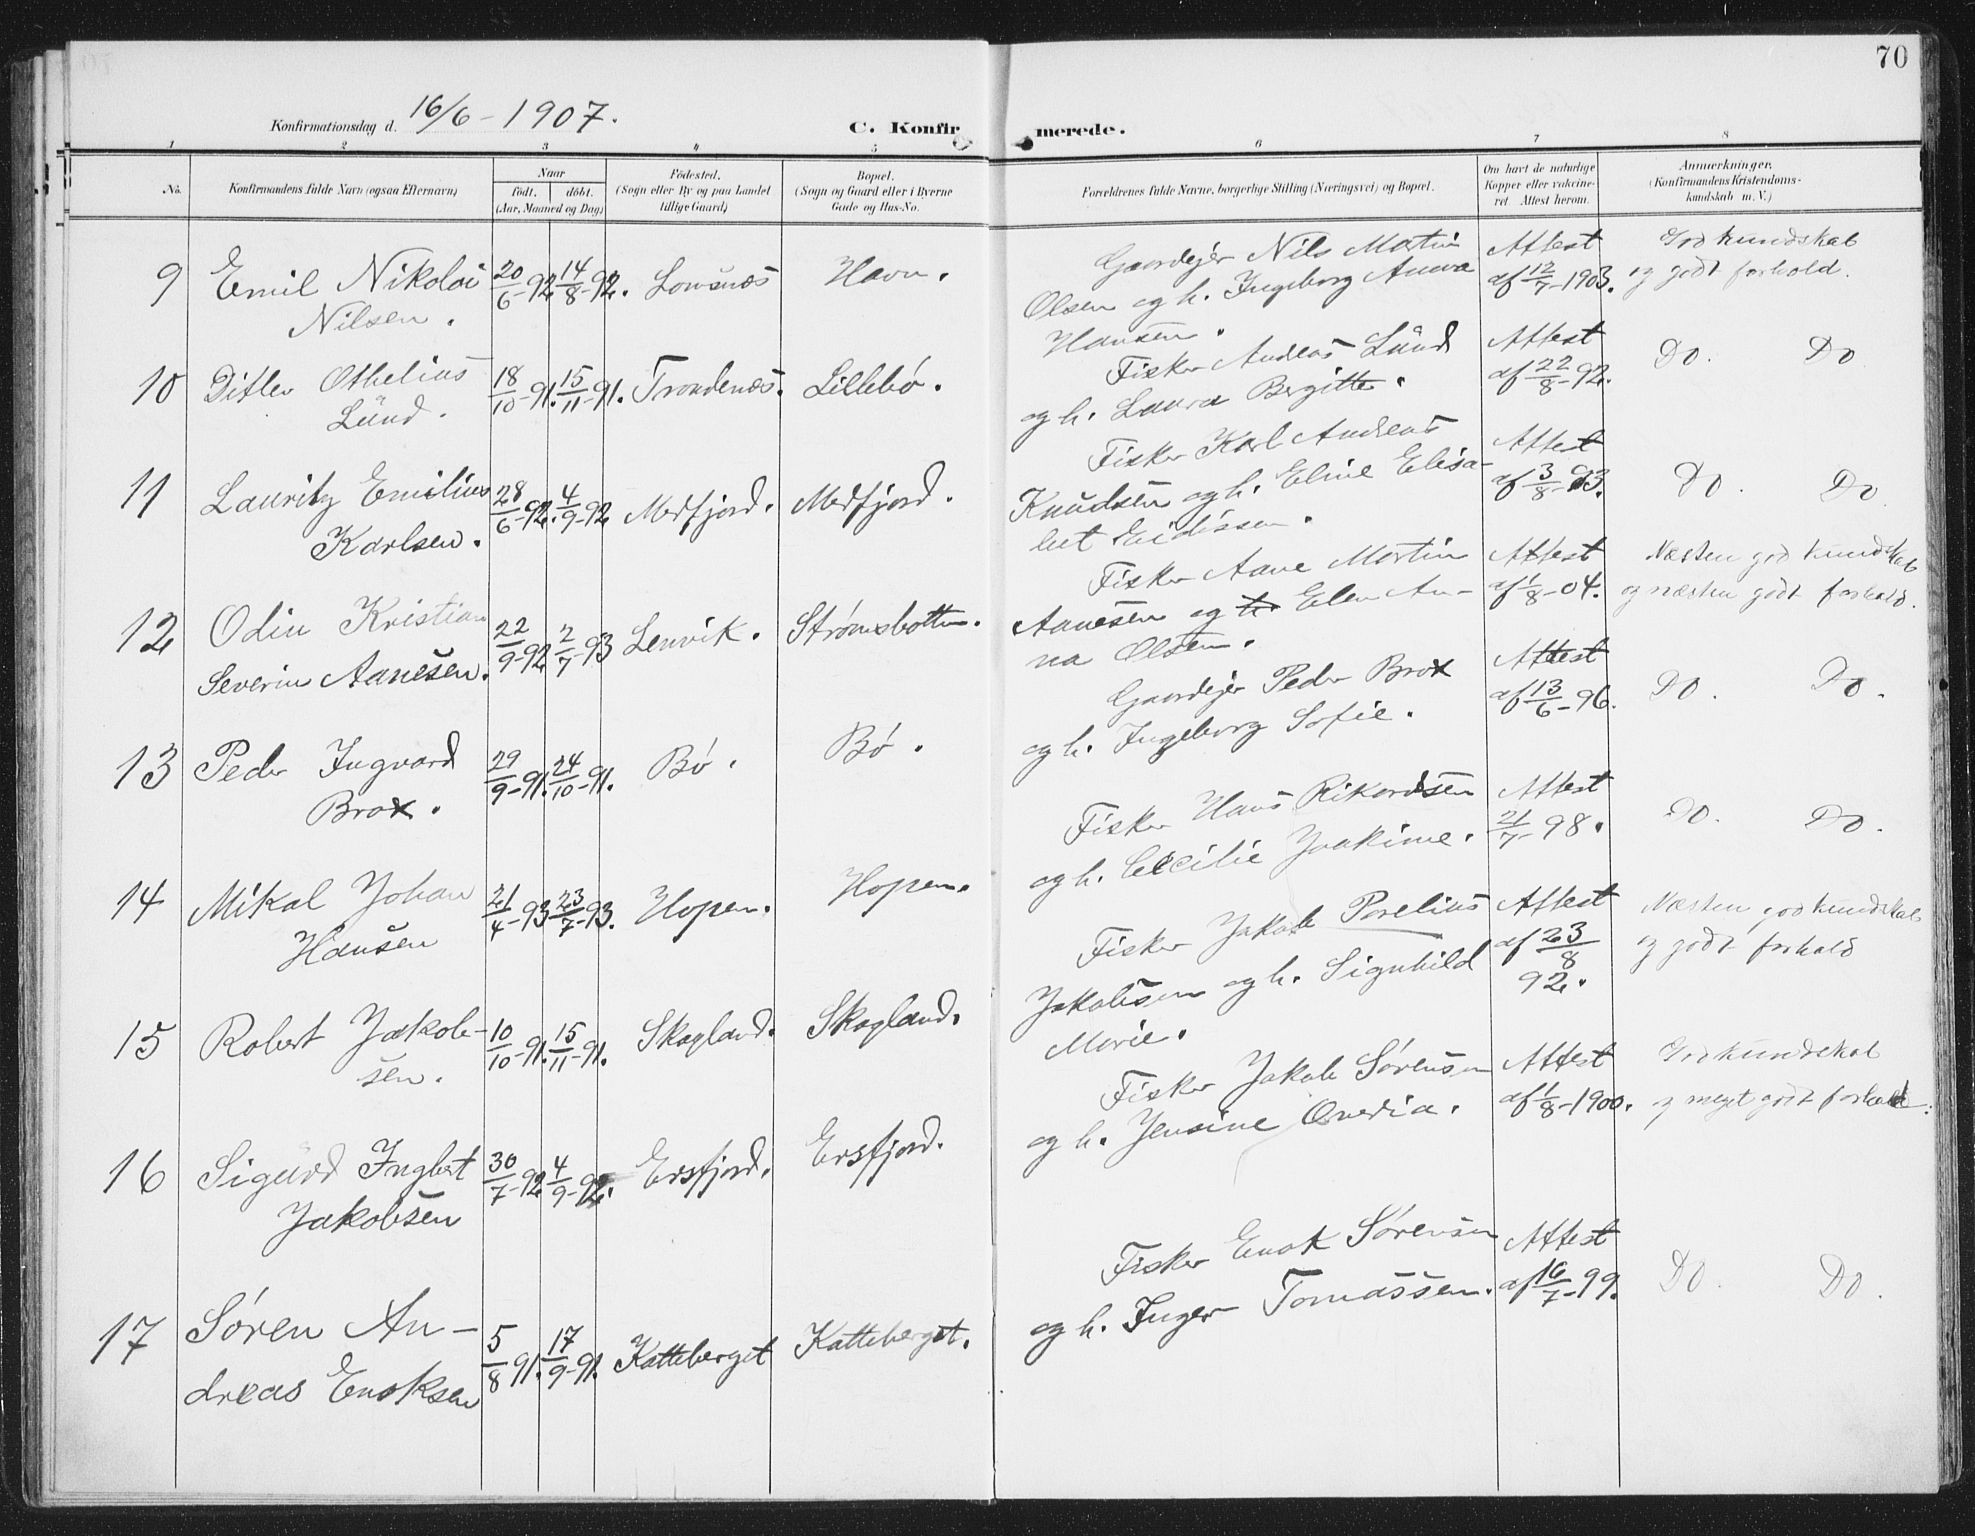 70
Konfirmationsdag d. 16/6 - 1907.
C. Konfirmerede.
1 2 3 4 5 6 7 8
No.
Konfirmandens fulde Navn (ogsaa Efternavn)
Naar
født. døbt.
(Aar, Maaned og Dag)
Fødested.
(Sogn eller By og paa Landet
tillige Gaard)
Bopæl.
(Sogn og Gaard eller i Byerne
Gade og Hus-No.
Forældrenes fulde Navne, borgerlige Stilling (Næringsvei) og Bopæl.
Om havt de naturlige
Kopper eller vakcine-
ret. Attest herom.
Anmærkninger.
(Konfirmandens Kristendoms-
kundskab m. V.)
9 Emil Nikolai
Nilsen.
20/6-92 14/8-92. Havn.
Gaardejer Nils Martin
Olsen og h. Ingeborg Anna
Hansen.
Attest
af 12/7-1903.
God kundskab
og godt forhold.
10 Ditlev Othelius
Lŭnd.
18/10-91. 15/11-91. Trondenæs. Lillebø.
Fisker Andreas Lŭnd
og h. Laura Bergitte.
Attest
af 22/8-92.
Do. Do
11 Lauritz Emilius
Karlsen.
28/6-92. 4/9-92 Medfjord. Medfjord.
Fisker Karl Andreas
Knudsen og h. Eline Elisa-
bet
Attest
af 3/8-93.
Do. Do
12 Odin Kristian
Severin Aanesen.
22/9-92 2/7-93 Lenvik. Strømsbotten.
Fisker Aane Martin
Aanesen og h. Elen An-
na Olsen.
Attest
af 1/8-04.
Næsten god kundskab
og næsten godt forhold.
13 Peder Ingvard
Brox.
29/9-91. 24/10-91. Bø. Bø.
Gaardejer Peder Brox
og h. Ingeborg Sofie.
Attest
af 13/6-96.
Do. Do.
14 Mikal Johan
Hansen
21/4-93 23/7-93. Hopen. Hopen.
Fisker Hans Rikardsen
og h. Cecilie Joakime.
Attest
21/7-98.
Do. Do.
15 Robert Jakob-
sen.
10/10-91. 15/11-91. Skogland. Skogland.
Fisker Jakob Porelius
Jakobsen og h. Signhild
Marie.
Attest
af 23/8
92.
Næsten god kundskab
og godt forhold
16 Sigŭrd Ingbert
Jakobsen
30/7-92 4/9-92. Ersfjord. Ersfjord.
Fisker Jakob Sørensen
og h. Jensine Qvedia.
Attest
af 1/8-1900.
God kundskab
og meget godt forhold.
17 Søren An-
dreas Enoksen
5/8 91. 17/9-91. Katteberget Katteberget.
Fisker Enok Sørensen
og h. Inger Tomassen.
Attest
af 16/7-99.
Do. Do.